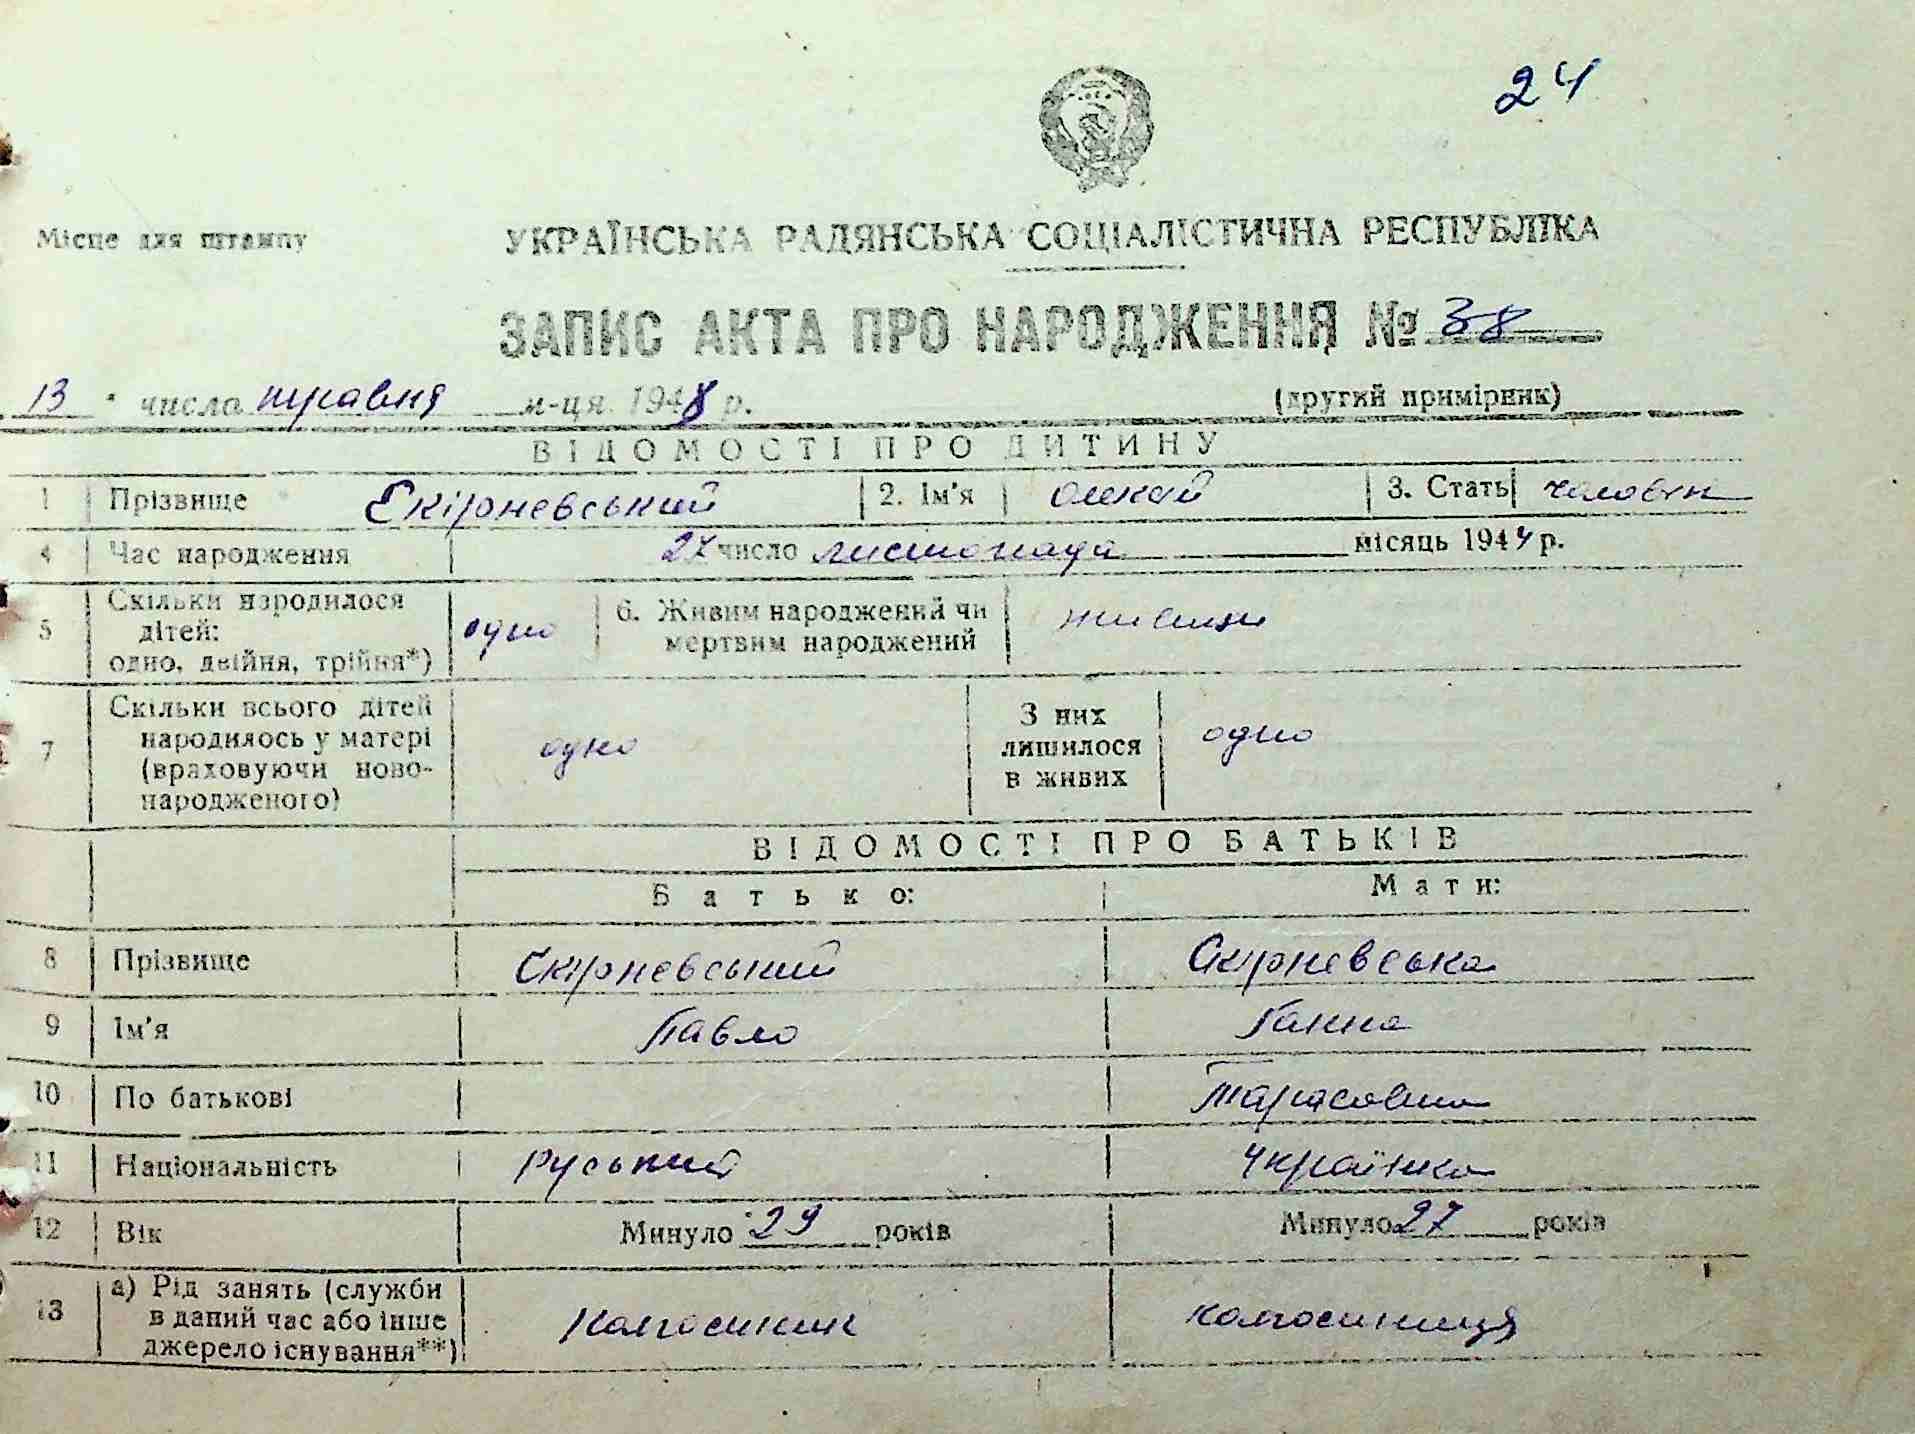 24
Місце для штампу
УКРАЇНСЬКА РАДЯНСЬКА СОЦІАЛІСТИЧНА РЕСПУБЛІКА
ЗАПИС АКТА ПРО НАРОДЖЕННЯ № 38
13 числа травня м-ця 1948 р. (другий примірник)
ВІДОМОСТІ ПРО ДИТИНУ
1 Прізвище Скірневський 2. Ім'я 3. Стать
4 Час народження 27 число листопада місяць 1944 р.
5 Скільки народилося
дітей:
одно, двійня, трійня*) одно 6. Живим народжений чи
мертвим народжений живим
7 Скільки всього дітей
народилось у матері
(враховуючи ново-
народженого) одно З них
лишилося
в живих одно
ВІДОМОСТІ ПРО БАТЬКІВ
Батько: Мати:
8 Прізвище Скірневський Скірневська
9 Ім'я Павло Ганна
10 По батькові Тарасовна
11 Національність руський українка
12 Вік Минуло 29 років Минуло 27 років
13 а) Рід занять (служби
в даний час або інше
джерело існування**) колгоспник колгоспниця